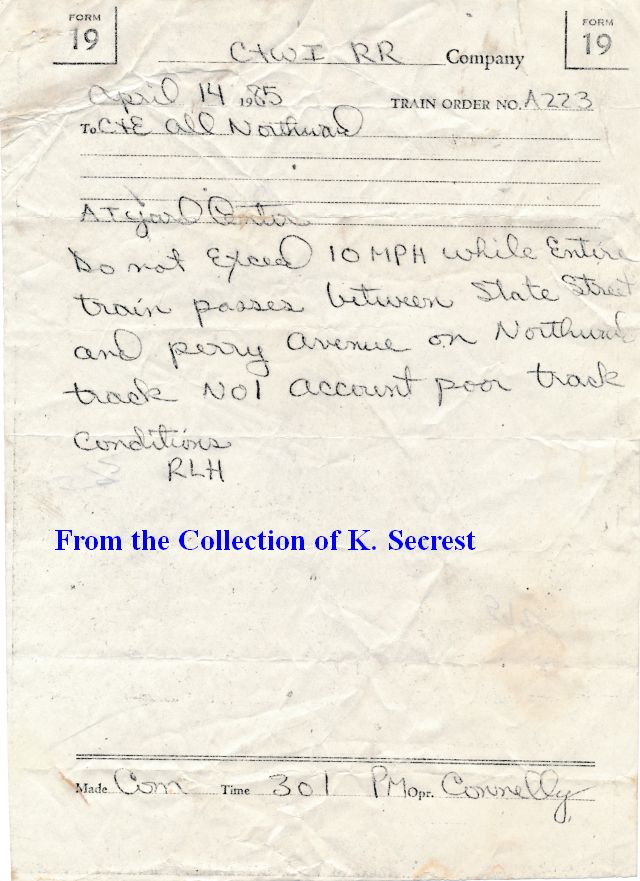 FORM 19
FORM 19
C+WI RR Company
April 14 1985 TRAIN ORDER NO. A223
To C+E all Northward
At yard Center
Do not Exceed 10 MPH while Entire
train passes between State Street
and perry avenue on Northward
track No1 account poor track
Conditions
RLH
From the Collection of K. Secrest
Made Com Time 301 PM Opr. Connelly